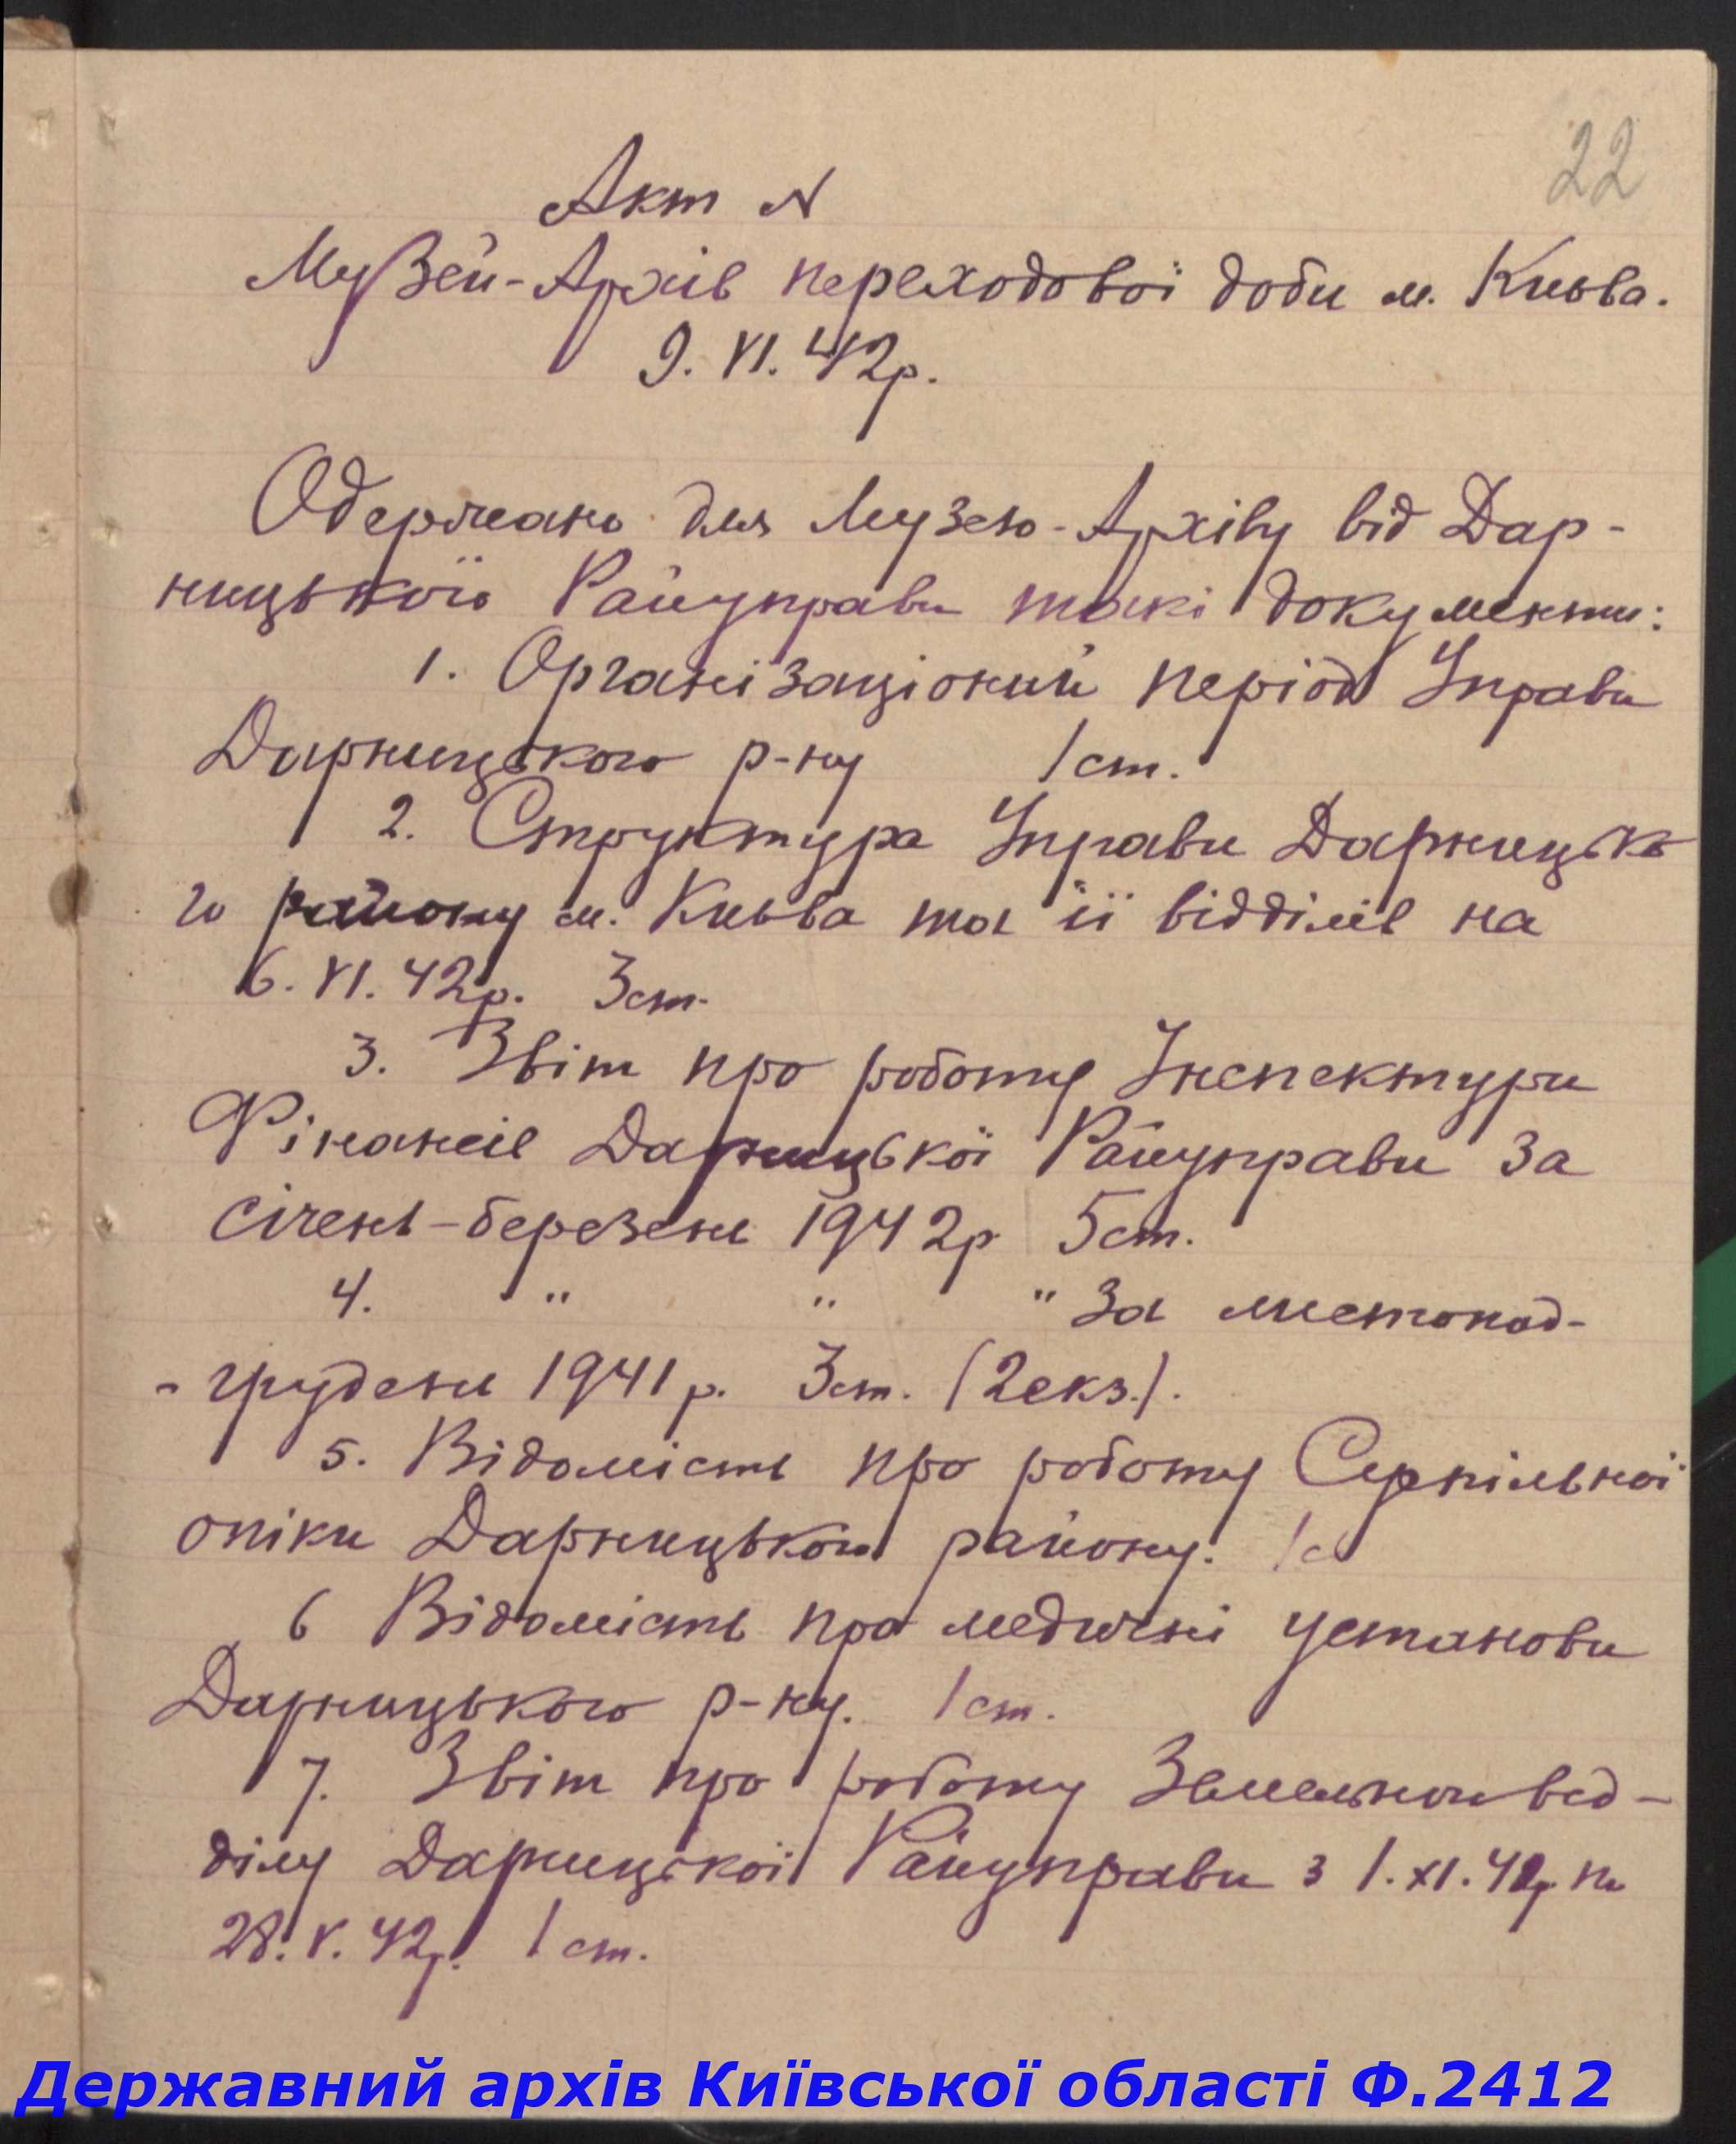 22
Акт N
Музей-Архів переходової доби м. Києва.
9. VI. 42р.
Одержано для Музею-Архіву від Дар-
ницької Райуправи такі документи:
1. Організаціоний період Управи
Дарницького р-ну 1 ст.
2. Структура Управи Дарницько
го району м. Києва та її відділів на
6. VI. 42р. 3 ст.
3. Звіт про роботу Інспектури
Фінансів Дарницької Райуправи за
січень-березень 1942р 5 ст.
4. " " " за листопад-
- грудень 1941 р. 3 ст. (2 екз.).
5. Відомість про роботу Суспільної
опіки Дарницького району. 1 с
6 Відомість про медичні установи
Дарницького р-ну. 1 ст.
7. Звіт про роботу Земельного від-
ділу Дарницької Райуправи з 1. XI. по
28. V. 42р. 1 ст.
Державний архів Київської області Ф.2412